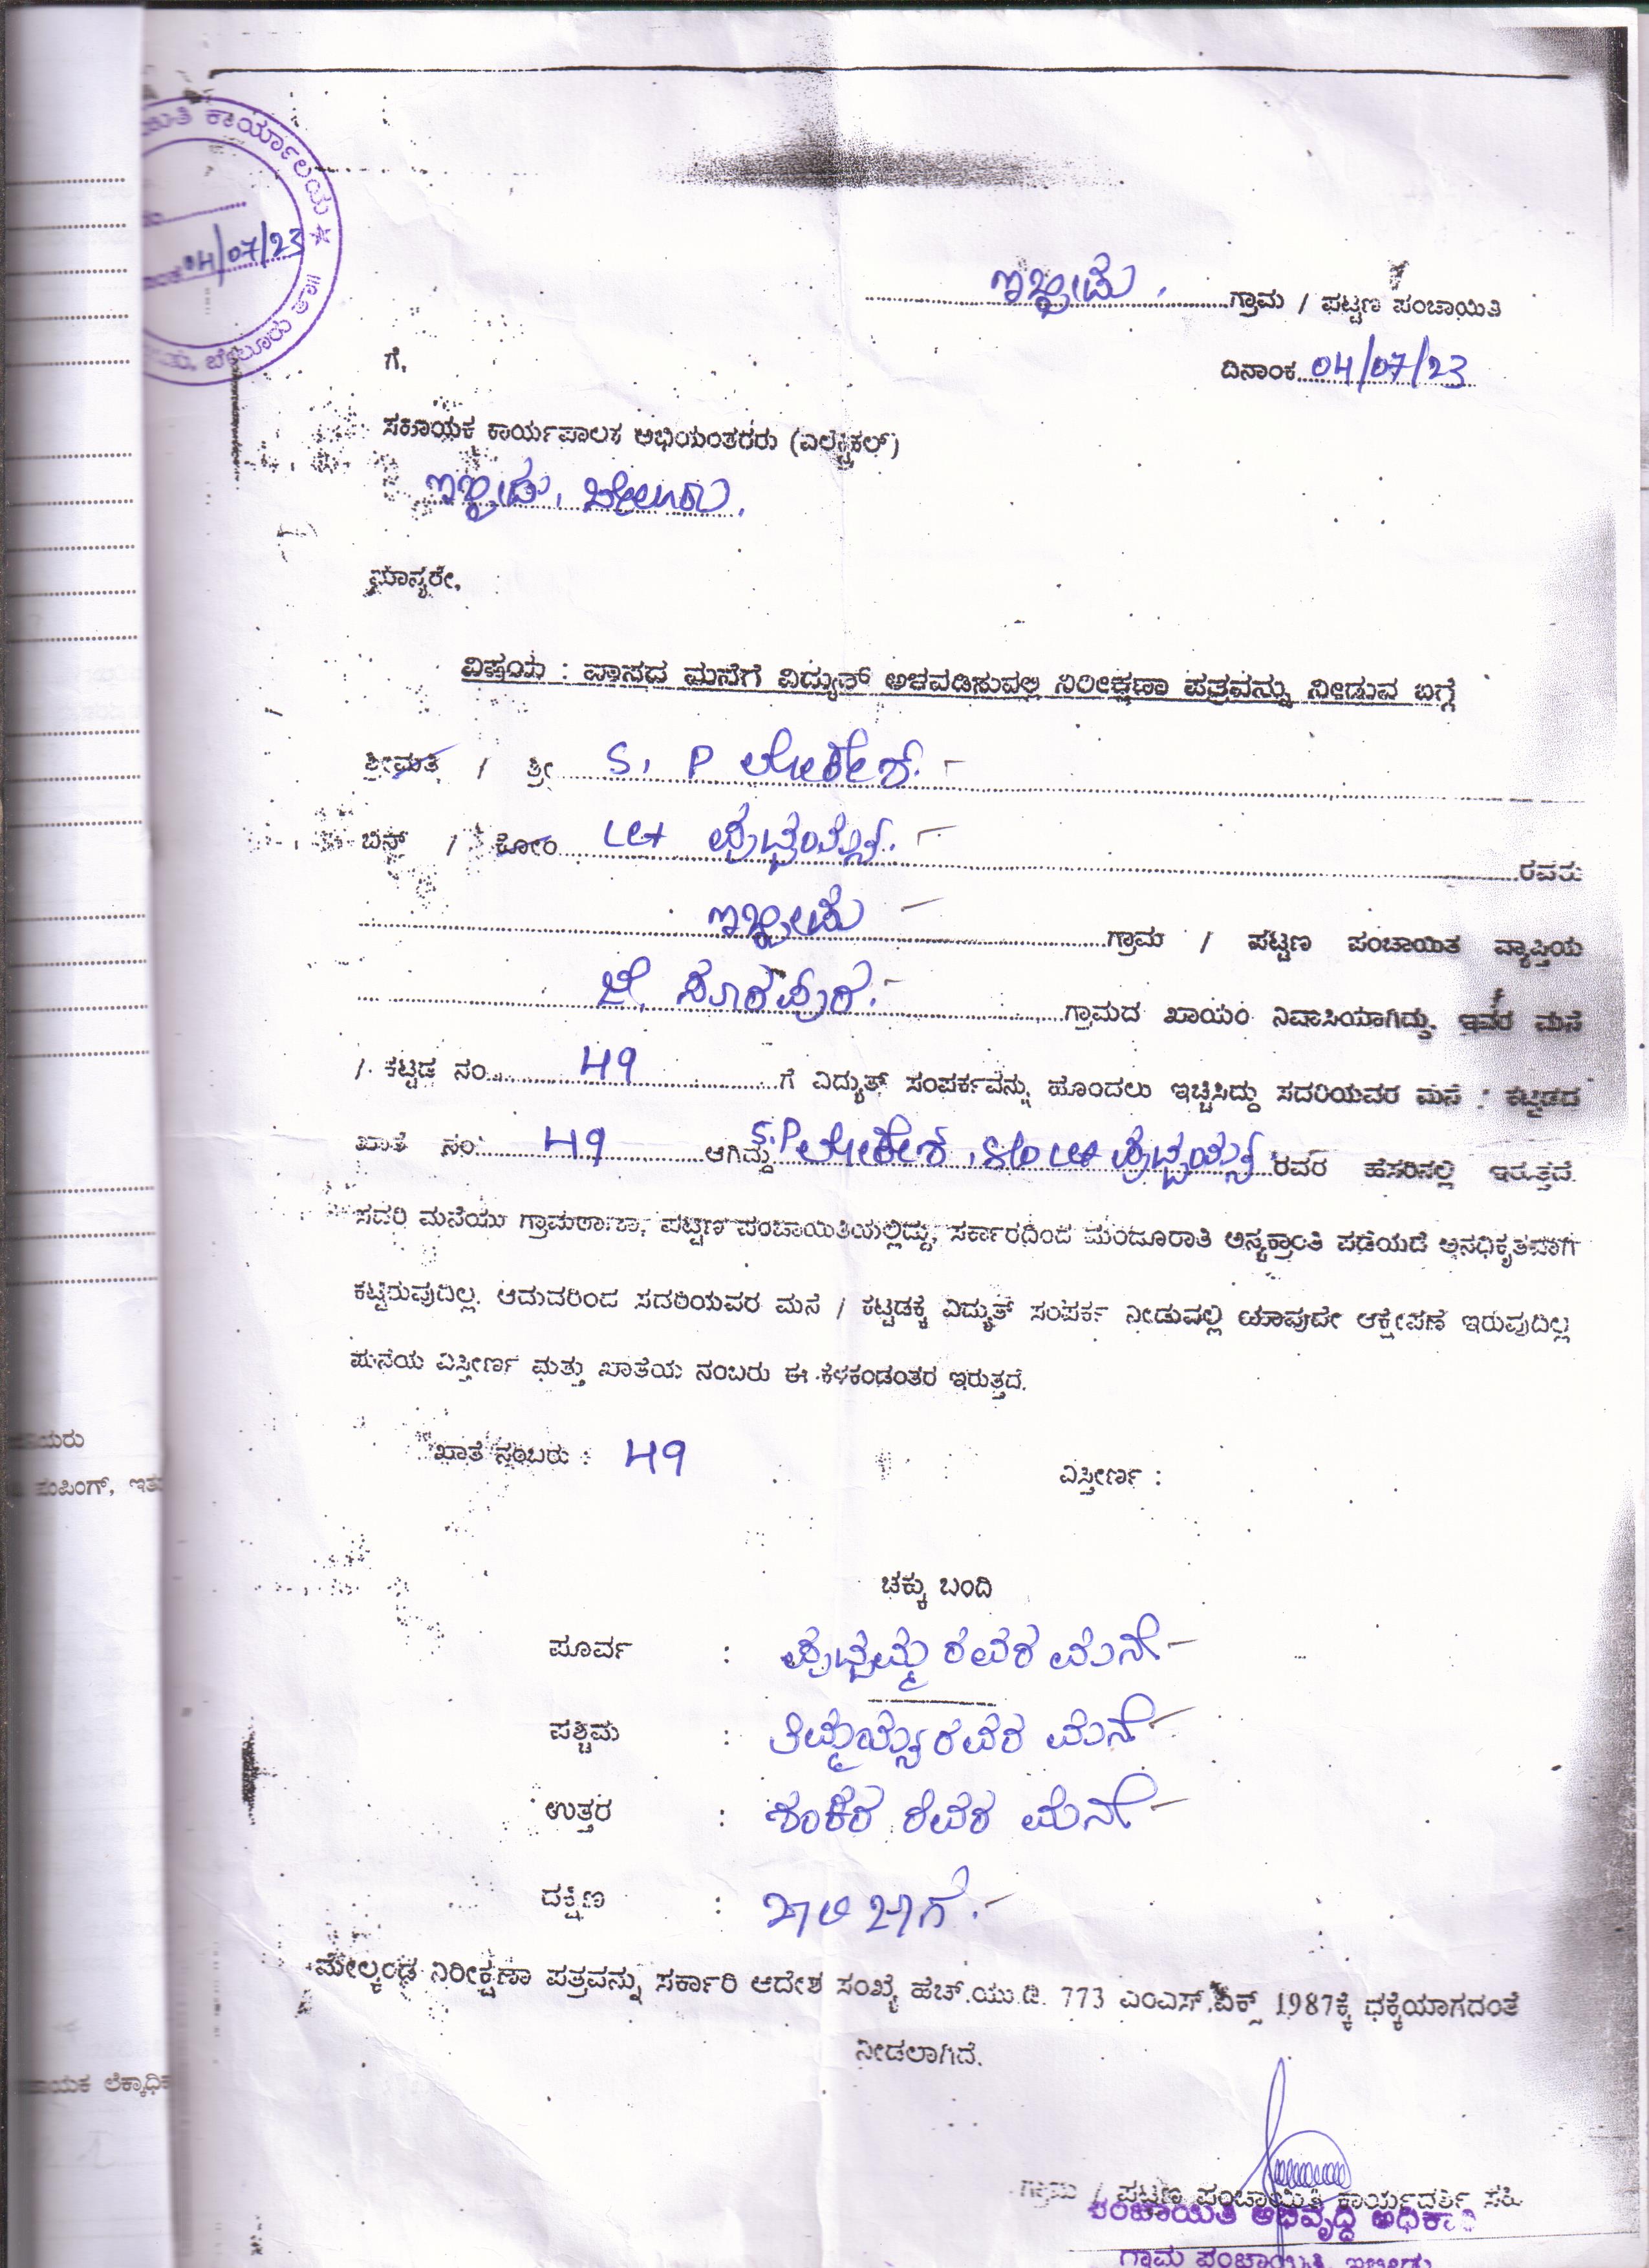 ಕಾರ್ಯಾಲಯ ★
04/07/23
ಬೇಲೂರು
ಇಬ್ಬೀಡು. ಗ್ರಾಮ / ಪಟ್ಟಣ ಪಂಚಾಯಿತಿ
ದಿನಾಂಕ 04/07/23
ಗೆ,
ಸಹಾಯಕ ಕಾರ್ಯಪಾಲಕ ಅಭಿಯಂತರರು (ಎಲೆಕ್ಟ್ರಿಕಲ್)
ಇಬ್ಬೀಡು, ಬೇಲೂರು.
ಮಾನ್ಯರೇ,
ವಿಷಯ : ವಾಸದ ಮನೆಗೆ ವಿದ್ಯುತ್ ಅಳವಡಿಸುವಲ್ಲಿ ನಿರೀಕ್ಷಣಾ ಪತ್ರವನ್ನು ನೀಡುವ ಬಗ್ಗೆ
ಶ್ರೀಮತಿ / ಶ್ರೀ S, P ಲೋಕೇಶ್.
ಬಿನ್ / ಕೋಂ ರವರು
ಇಬ್ಬೀಡು ಗ್ರಾಮ / ಪಟ್ಟಣ ಪಂಚಾಯಿತ ವ್ಯಾಪ್ತಿಯ
ಜೆ. ಸೂರಾಪುರ. ಗ್ರಾಮದ ಖಾಯಂ ನಿವಾಸಿಯಾಗಿದ್ದು, ಇವರ ಮನೆ
/ ಕಟ್ಟಡ ನಂ. 49 ಗೆ ವಿದ್ಯುತ್ ಸಂಪರ್ಕವನ್ನು ಹೊಂದಲು ಇಚ್ಚಿಸಿದ್ದು ಸದರಿಯವರ ಮನೆ / ಕಟ್ಟಡದ
ಖಾತೆ ನಂ 49 ಆಗಿದ್ದು S.P ಲೋಕೇಶ, S/o ರವರ ಹೆಸರಿನಲ್ಲಿ ಇರುತ್ತದೆ.
ಸದರಿ ಮನೆಯು ಗ್ರಾಮಠಾಣಾ, ಪಟ್ಟಣ ಪಂಚಾಯಿತಿಯಲ್ಲಿದ್ದು, ಸರ್ಕಾರದಿಂದ ಮಂಜೂರಾತಿ ಅನ್ಯಕ್ರಾಂತಿ ಪಡೆಯದೆ ಅನಧಿಕೃತವಾಗಿ
ಕಟ್ಟಿರುವುದಿಲ್ಲ. ಆದುದರಿಂದ ಸದರಿಯವರ ಮನೆ / ಕಟ್ಟಡಕ್ಕೆ ವಿದ್ಯುತ್ ಸಂಪರ್ಕ ನೀಡುವಲ್ಲಿ ಯಾವುದೇ ಆಕ್ಷೇಪಣೆ ಇರುವುದಿಲ್ಲ
ಮನೆಯ ವಿಸ್ತೀರ್ಣ ಮತ್ತು ಖಾತೆಯ ನಂಬರು ಈ ಕೆಳಕಂಡಂತರ ಇರುತ್ತದೆ.
ಖಾತೆ ನಂಬರು : 49 ವಿಸ್ತೀರ್ಣ :
ಚಕ್ಕು ಬಂದಿ
ಪೂರ್ವ : ಪುಟ್ಟಮ್ಮ ರವರ ಮನೆ
ಪಶ್ಚಿಮ : ತಿಮ್ಮಯ್ಯ ರವರ ಮನೆ
ಉತ್ತರ : ಶಂಕರ ರವರ ಮನೆ
ದಕ್ಷಿಣ : ಖಾಲಿ ಜಾಗ.
ಮೇಲ್ಕಂಡ ನಿರೀಕ್ಷಣಾ ಪತ್ರವನ್ನು ಸರ್ಕಾರಿ ಆದೇಶ ಸಂಖ್ಯೆ ಹೆಚ್.ಯು.ಡಿ. 773 ಎಂಎಸ್.ಎಕ್ಸ್ 1987ಕ್ಕೆ ಧಕ್ಕೆಯಾಗದಂತೆ
ನೀಡಲಾಗಿದೆ.
ಗ್ರಾಮ / ಪಟ್ಟಣ ಪಂಚಾಯಿತಿ ಕಾರ್ಯದರ್ಶಿ ಸಹಿ
ಪಂಚಾಯಿತಿ ಅಭಿವೃದ್ಧಿ ಅಧಿಕಾರಿ
ಗ್ರಾಮ ಪಂಚಾಯಿತಿ, ಇಬ್ಬೀಡು